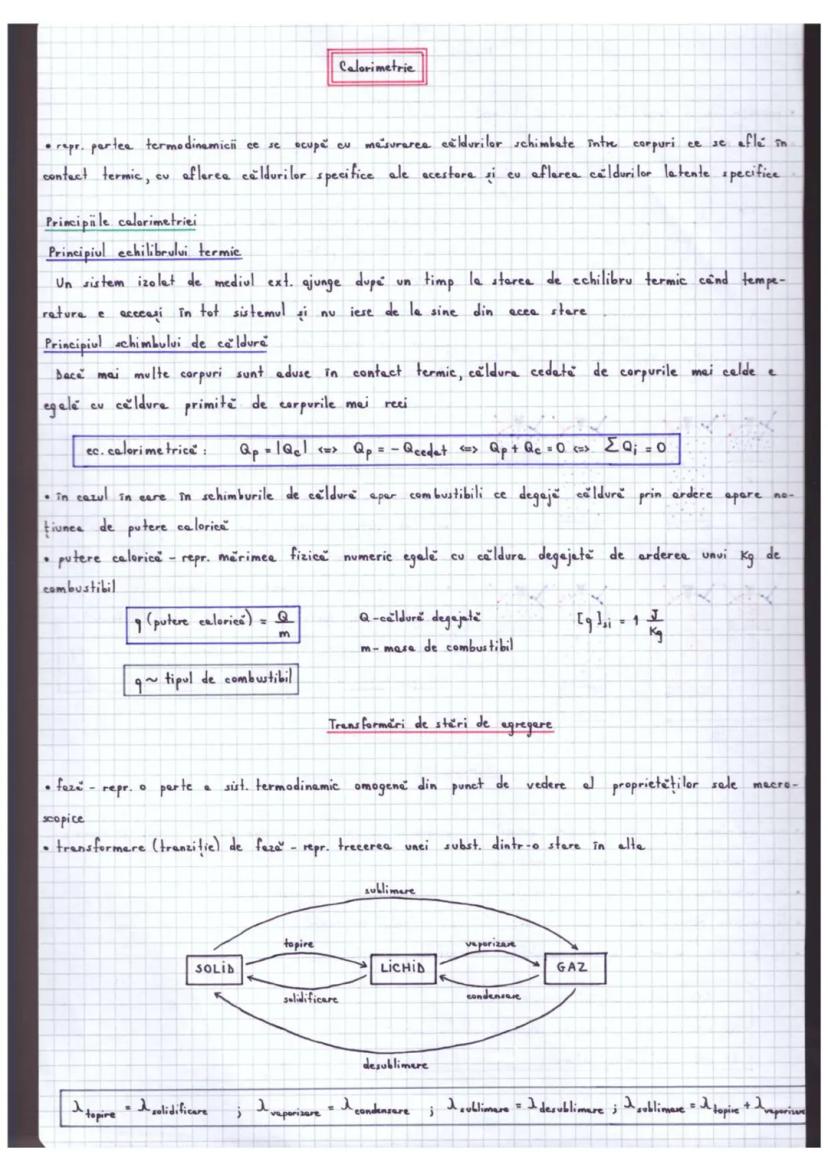 Calorimetrie
• repr. partea termodinamicii ce se ocupă cu măsurarea căldurilor schimbate între corpuri ce se află în
contact termic, cu aflarea căldurilor specifice ale acestora și cu aflarea căldurilor latente specifice
Principiile calorimetriei
Principiul echilibrului termic
Un sistem izolat de mediul ext. ajunge după un timp la starea de echilibru termic când tempe-
ratura e aceeași în tot sistemul și nu iese de la sine din acea stare
Principiul schimbului de căldură
Dacă mai multe corpuri sunt aduse în contact termic, căldura cedată de corpurile mai calde e
egală cu căldura primită de corpurile mai reci
ec. calorimetrică : Qp = |Qc| <=> Qp = - Qcedat <=> Qp + Qc = 0 <=> ΣQi = 0
• în cazul în care în schimburile de căldură apar combustibili ce degajă căldură prin ardere apare no-
țiunea de putere calorică
• putere calorică - repr. mărimea fizică numeric egală cu căldura degajată de arderea unui Kg de
combustibil
q (putere calorică) = Q/m Q - căldură degajată [q]si = 1 J/Kg
m - masa de combustibil
q ~ tipul de combustibil
Transformări de stări de agregare
• fază - repr. o parte a sist. termodinamic omogenă din punct de vedere al proprietăților sale macro-
scopice
• transformare (tranziție) de fază - repr. trecerea unei subst. dintr-o stare în alta
sublimare
topire vaporizare
SOLID LICHID GAZ
solidificare condensare
desublimare
λtopire = λsolidificare ; λvaporizare = λcondensare ; λsublimare = λdesublimare ; λsublimare = λtopire + λvaporizare